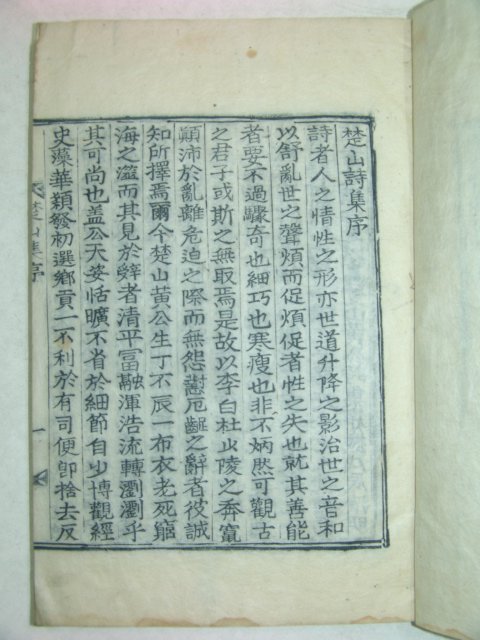 楚山詩集序
詩者人之情性之形亦世道升降之影治世之音和
以舒亂世之聲煩而促煩促者性之失也就其善能
者要不過驟奇也細巧也寒瘦也非不炳然可觀古
之君子或斯之無取焉是故以李白杜少陵之奔竄
顚沛於亂離危迫之際而無怨懟厄齪之辭者彼誠
知所擇焉爾今楚山黃公生丁不辰一布衣老死窮
海之澨而其見於辭者清平富融渾浩流轉瀏瀏乎
其可尚也盖公天姿恬曠不省於細節自少博觀經
史藻華穎發初選鄕貢一不利於有司便卽捨去反
楚山集序
一